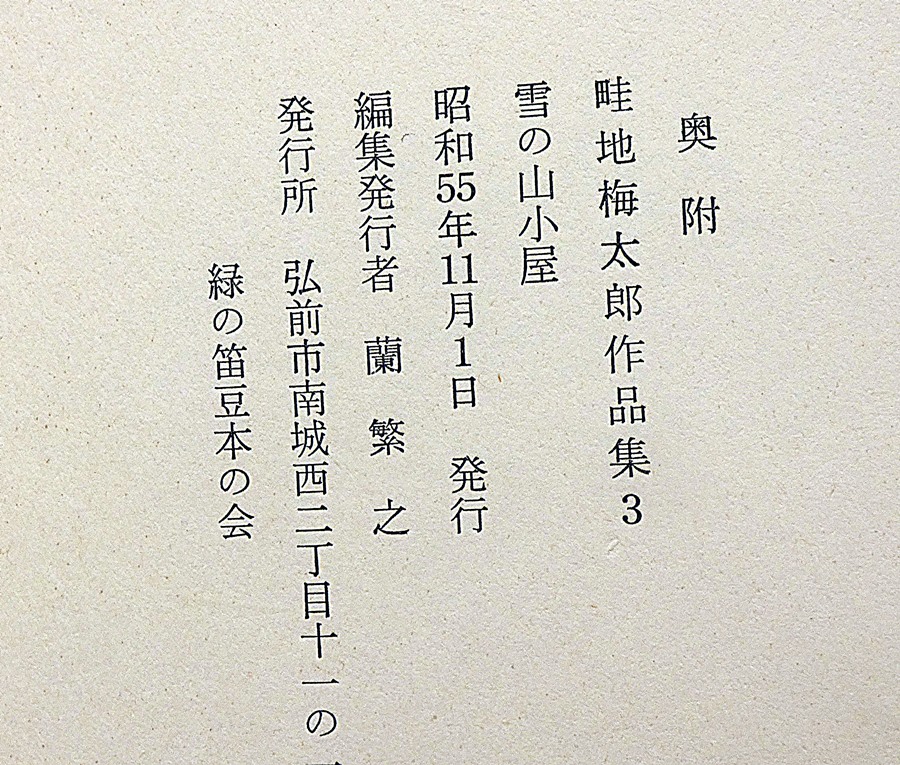 奥附
畦地梅太郎作品集3
雪の山小屋
昭和55年11月1日 発行
編集発行者 蘭繁之
発行所 弘前市南城西二丁目十一の
緑の笛豆本の会